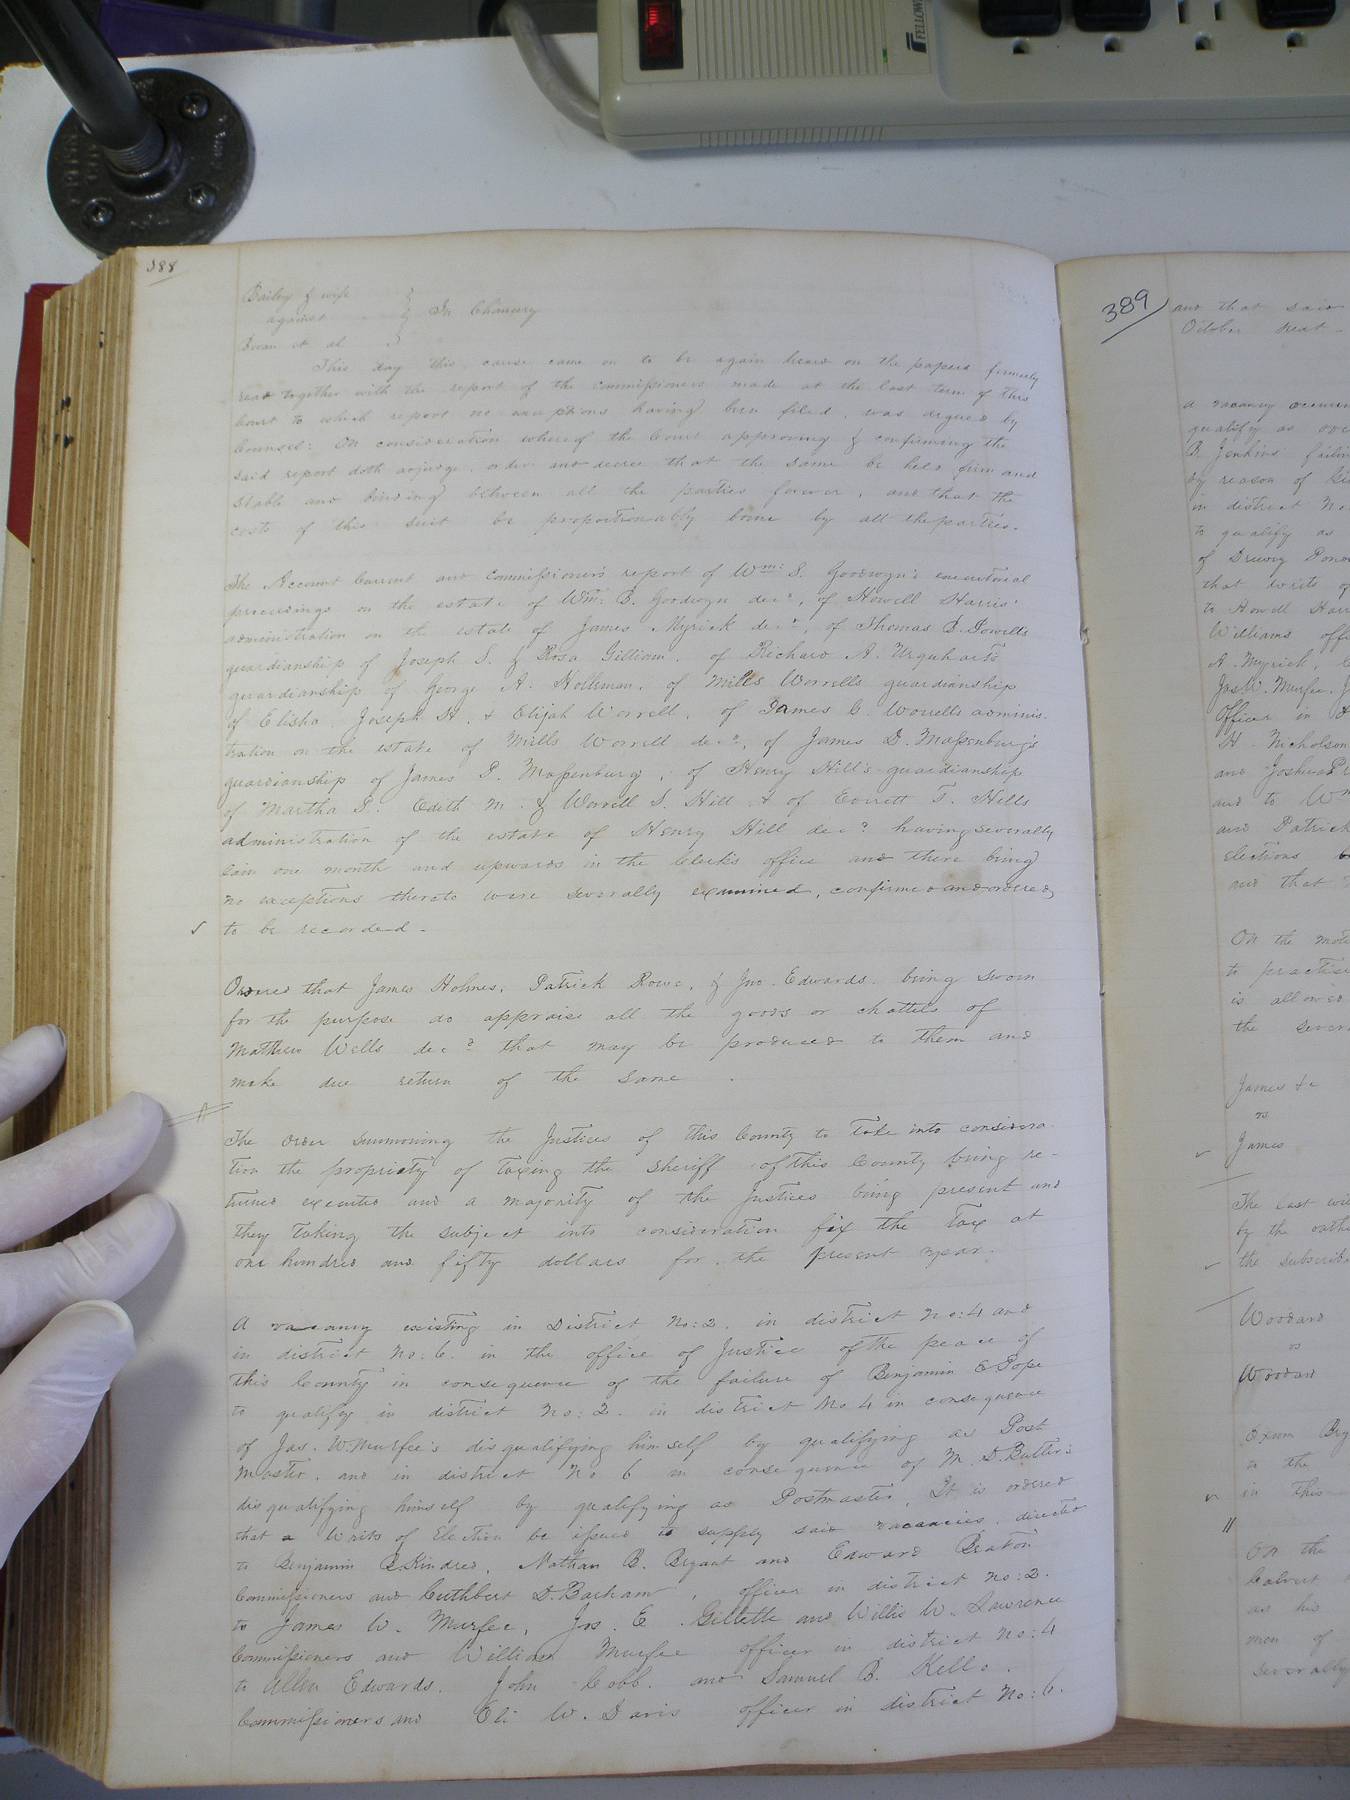 FELLOWES
388
Bailey & wife
against } In Chancery
et al
This day this cause came on to be again heard on the papers formerly
read together with the report of the commissioners made at the last term of this
Court to which report no exceptions having been filed, was argued by
Counsel: On consideration whereof the Court approving & confirming the
said report doth adjudge, order and decree that the same be held firm and
stable and binding between all the parties forever, and that the
costs of this suit be proportionably borne by all the parties.
The Account Current and Commissioner's report of Wm: S. Goodwyn's executorial
proceedings on the estate of Wm. B. Goodwyn decd, of Howell Harris'
administration on the estate of James Myrick decd, of Thomas
guardianship of Joseph S. & Rosa Gilliam, of Richard A. Urquharts
guardianship of George A. Holleman, of Mills Worrells guardianship
of Elisha, Joseph H. & Elijah Worrell, of James C. Worrells adminis-
tration on the estate of Mills Worrell decd, of James D. Massenburg's
guardianship of James D. Massenburg, of Henry Hill's guardianship
of Martha P. Edith M. & Worrell S. Hill & of Everett T. Hills
administration of the estate of Henry Hill decd having severally
lain one month and upwards in the Clerk's office and there being
no exceptions thereto were severally examined, confirmed and ordered
to be recorded -
Ordered that James Holmes, Patrick Rowe, & Jno. Edwards being sworn
for the purpose do appraise all the goods or chattels of
Matthew Wells decd that may be produced to them and
make due return of the same.
The order summoning the Justices of this County to take into considera-
tion the propriety of taxing the Sheriff of this County being re-
turned executed and a majority of the Justices being present and
they taking the subject into consideration fix the Tax at
one hundred and fifty dollars for the present year.
A vacancy existing in District No: 2. in district No: 4 and
in district No: 6. in the office of Justice of the peace of
this County in consequence of the failure of Benjamin E Pope
to qualify in district No: 2. in district No 4 in consequence
of Jas. W. Murfee's disqualifying himself by qualifying as Post
Master, and in district No 6 in consequence of M. D. Butler's
disqualifying himself by qualifying as Postmaster, It is ordered
that a Writs of Election be issued to supply said vacancies, directed
to Benjamin Kindred, Nathan B. Bryant and Edward Beaton
Commissioners and Cuthbert D. Barham, officer in district No: 2.
to James W. Murfee, Jos. E. Gillette and Willis W. Lawrence
Commissioners and William Murfee officer in district No: 4
to Allen Edwards, John Cobb, and Samuel B. Kello,
Commissioners and Eli W. Davis officer in district No: 6.
389
and that said
October next -
a vacancy occurring
qualify as
B. Jenkins failing
by reason of
in district No
to qualify as
of Drewry
that writs of
to Howell
Williams
A. Myrick,
Jas. W. Murfee,
Officer in
H. Nicholson
and Joshua
and to Wm
and Patrick
elections
and that
On the
to practise
is allowed
the
James &c
vs
James
The last will
by the oaths
the
Woodard
vs
Woodard
Exum
to the
in this
On the
Calvert
as his
mon of
severally